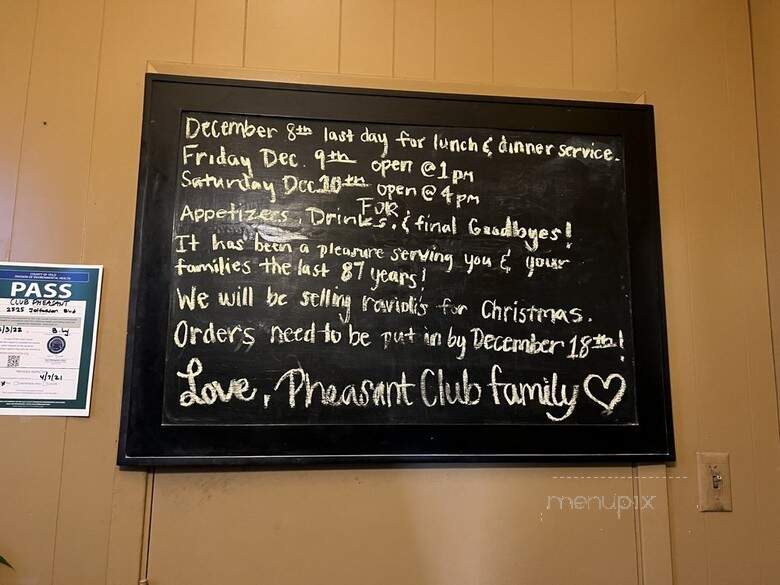 December 8th last day for lunch & dinner service.
Friday Dec. 9th open @ 1pm
Saturday Dec 10th open @ 4pm
FOR
Appetizers, Drinks, & final Goodbyes!
It has been a pleasure serving you & your
families the last 87 years!
We will be selling ravioli's for Christmas.
Orders need to be put in by December 18th!
Love, Pheasant Club family
COUNTY OF YOLO
DIVISION OF ENVIRONMENTAL HEALTH
PASS
CLUB PHEASANT
2525 Jefferson Blvd
4/7/21
menupix